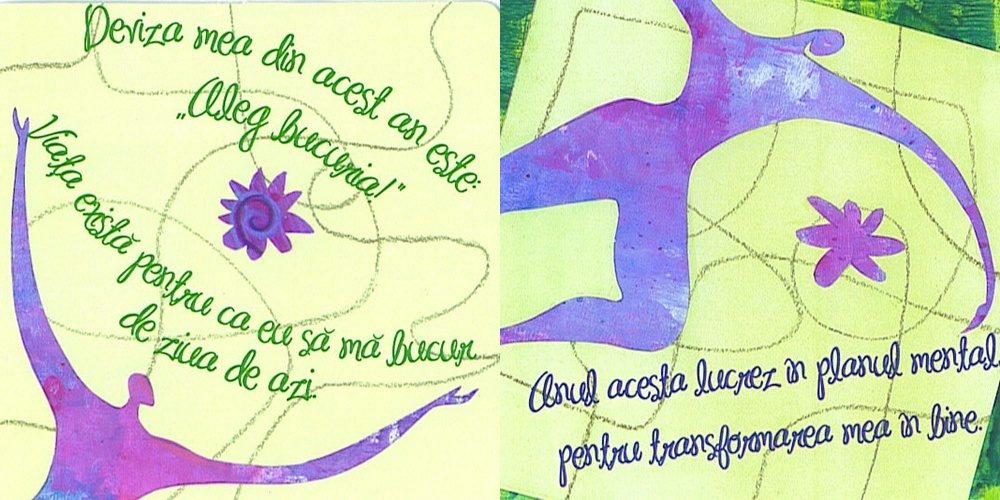 Deviza mea din acest an este:
„Aleg bucuria!”
Viața există pentru ca eu să mă bucur
de ziua de azi.
Anul acesta lucrez în planul mental
pentru transformarea mea în bine.